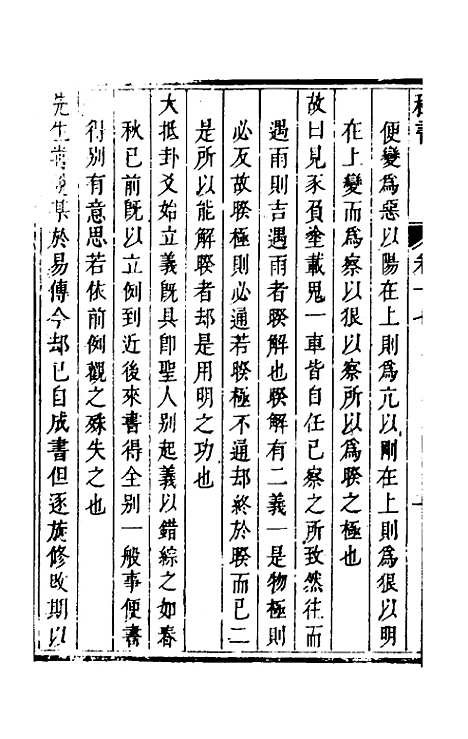 便變爲惡以陽在上則爲亢以剛在上則爲狠以明
在上變而爲察以狠以察所以爲睽之極也
故曰見豕負塗載鬼一車皆自任己察之所致然往而
遇雨則吉遇雨者睽解也睽解有二義一是物極則
必反故睽極則必通若睽極不通却終於睽而已二
是所以能解睽者却是用明之功也
大抵卦爻始立義旣具卽聖人別起義以錯綜之如春
秋已前旣以立例到近後來書得全別一般事便書
得別有意思若依前例觀之殊失之也
先生嘗說某於易傳今却已自成書但逐旋修改期以